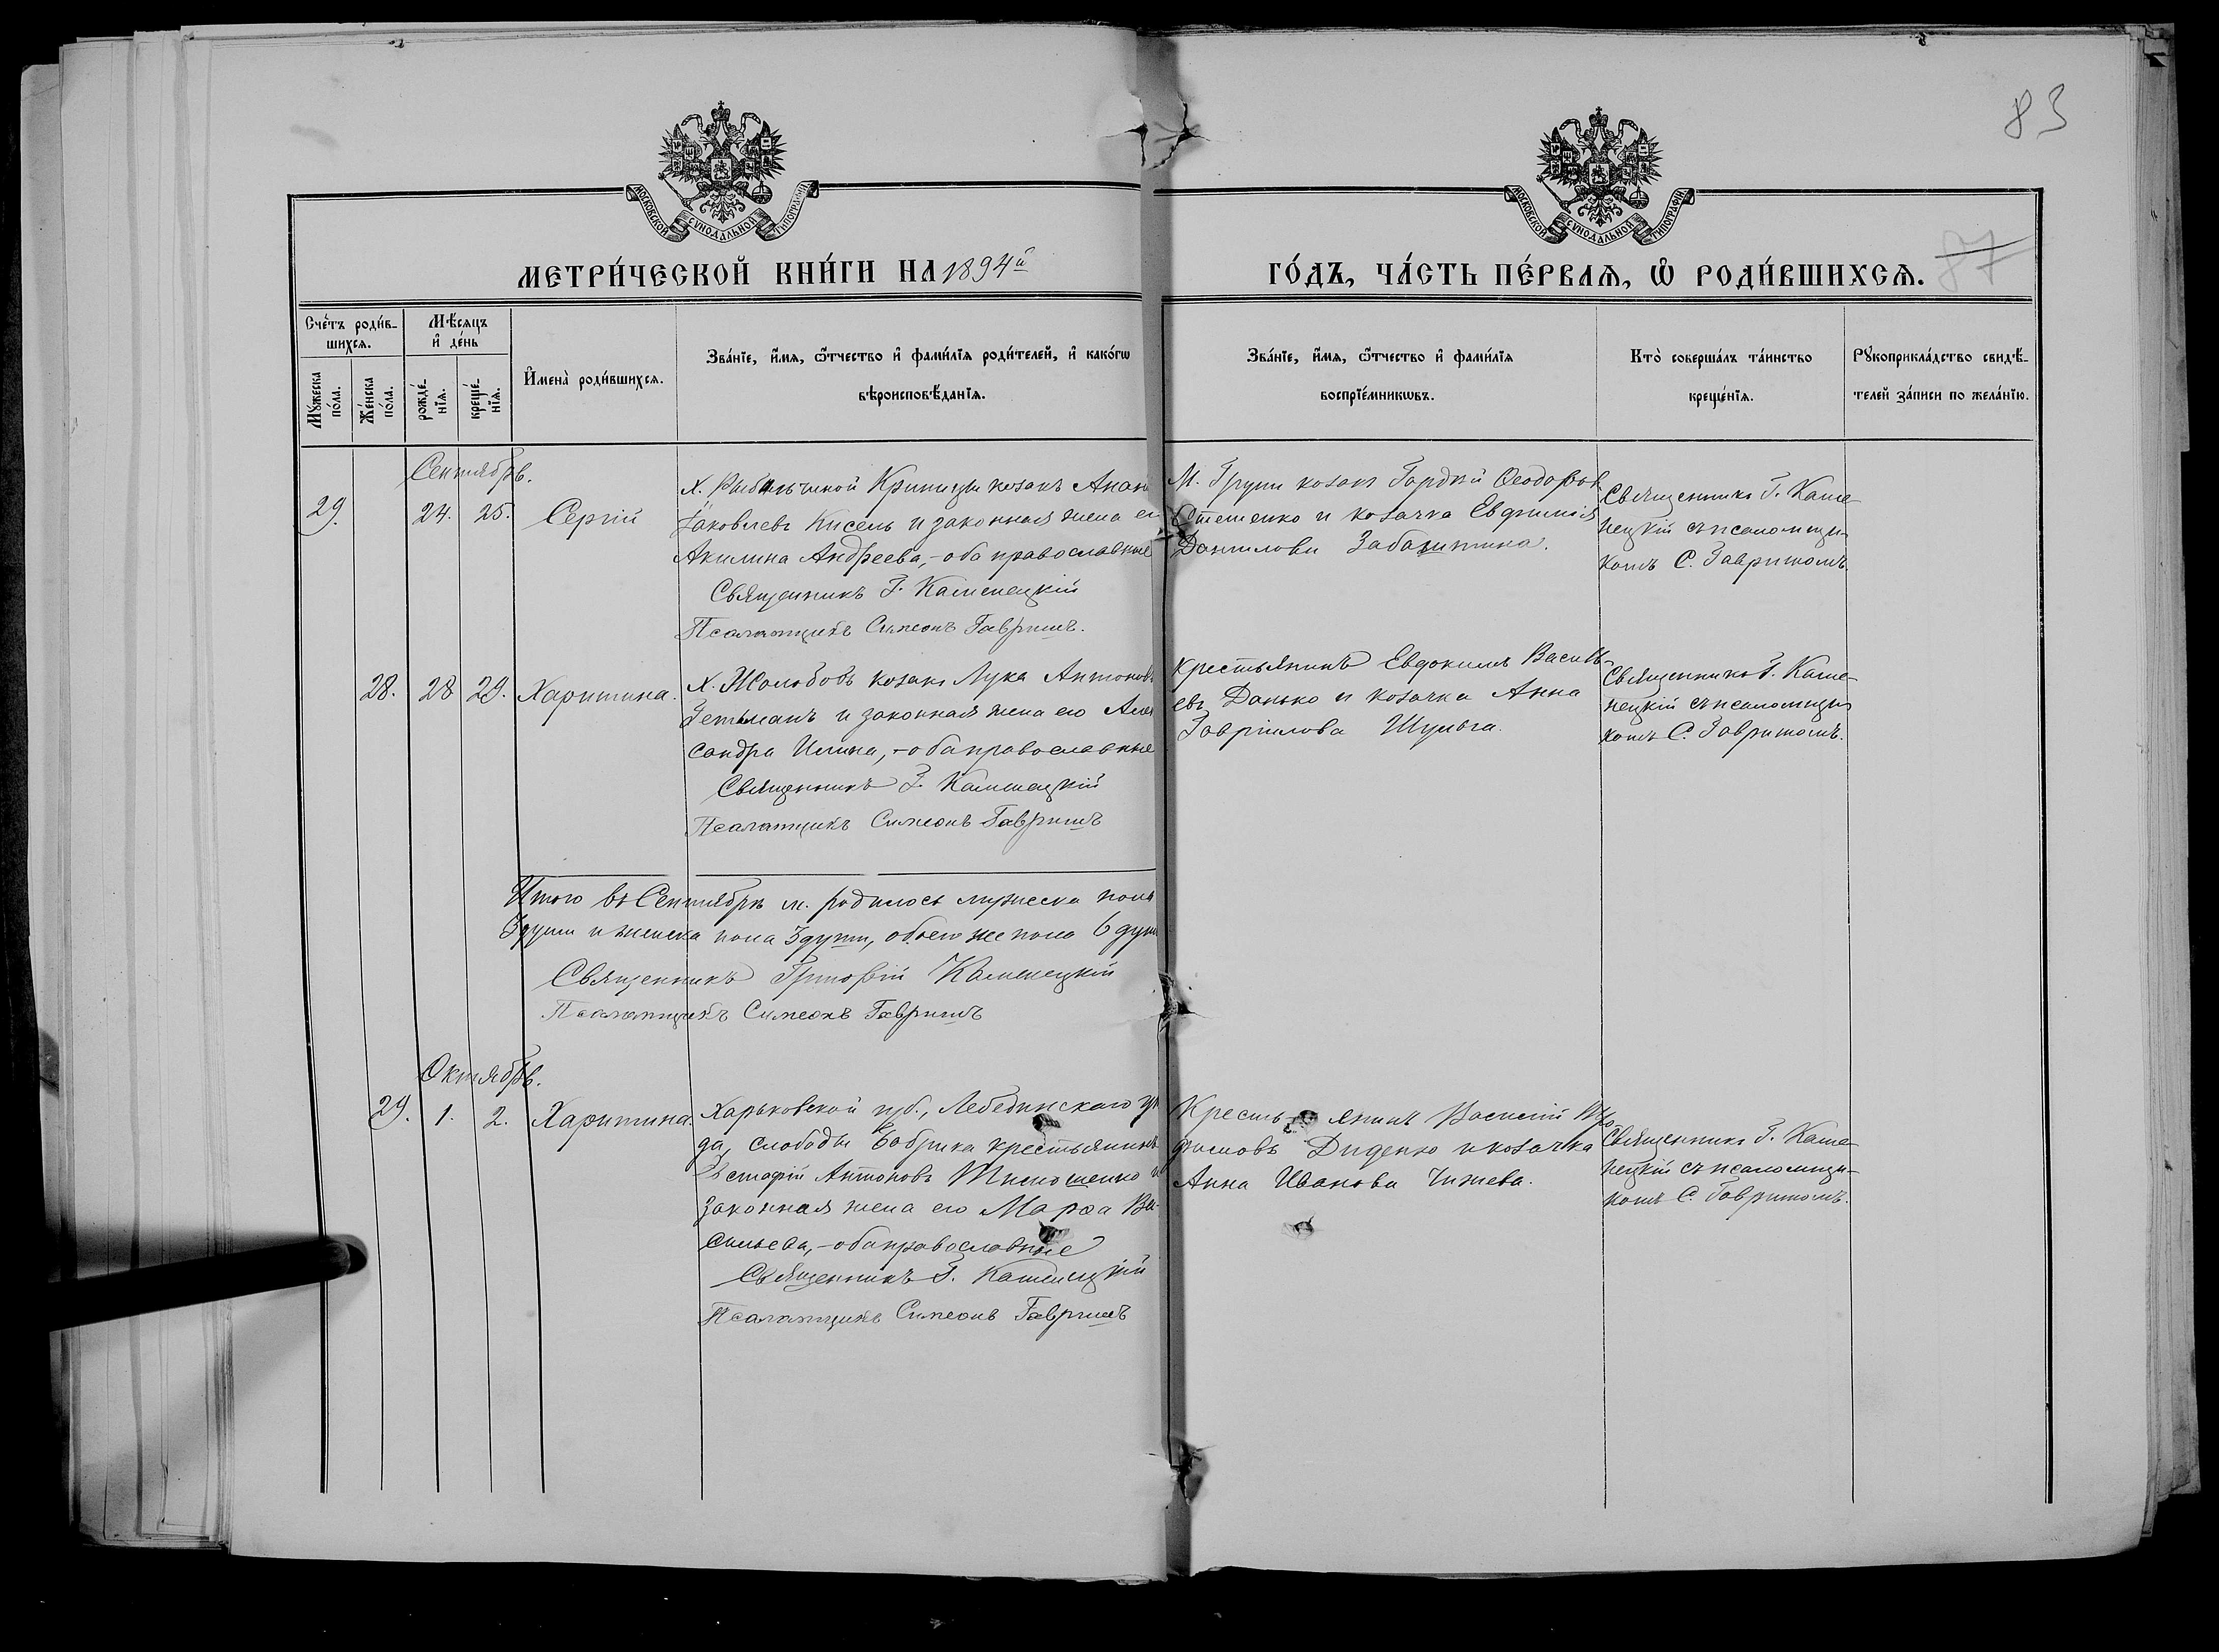 83
МОСКОВСКОЙ СѴНОДАЛЬНОЙ ТИПОГРАФІИ
МОСКОВСКОЙ СѴНОДАЛЬНОЙ ТИПОГРАФІИ
МЕТРИ́ЧЕСКОЙ КНИ́ГИ НА 1894й
ГО́ДЪ, ЧА́СТЬ ПЕ́РВАѦ, Ѽ РОДИ́ВШИХСѦ.
87
Сче́тъ роди́в-
шихсѧ.
Мꙋ́жеска по́ла.
Же́нска по́ла.
Мѣ́сѧцъ
и҆ де́нь
рожде́-
нїѧ.
креще́-
нїѧ.
И҆мена̀ роди́вшихсѧ.
Зва́нїе, и҆́мѧ, ѻ҆́тчество и҆ фами́лїѧ роди́телей, и҆ како́гѡ
вѣроисповѣ́данїѧ.
Зва́нїе, и҆́мѧ, ѻ҆́тчество и҆ фами́лїѧ
воспрїе́мникѡвъ.
Кто̀ соверша́лъ та́инство
креще́нїѧ.
Рꙋкоприкла́дство свидѣ́-
телей за́писи по жела́нїю.
Сентябрь.
29. 24. 25. Сергій
Х. Рыбальченой Криницы козакъ Анан
Іаковлевъ Кисель и законная жена ег
Акилина Андреева,-оба православные
Священникъ Г. Каменецкій
Псаломщикъ Симеонъ Гавришъ.
М. Груни козакъ Гордій Ѳеодоров
Стеценко и козачка Евфимія
Даниилова
Священникъ Г. Каме-
нецкій съ псаломщи-
комъ С. Гавришомъ.
28. 28 29. Харитина.
Х. Жолобовъ козакъ Лука Антоновъ
Гетьманъ и законная жена его Алек
сандра Илина,-оба православные
Священникъ Г. Каменецкій
Псаломщикъ Симеонъ Гавришъ
Крестьянинъ Евдокимъ Василь-
евъ Данько и козачка Анна
Гавріилова Шульга.
Священникъ Г. Каме-
нецкій съ псаломщи
комъ С. Гавришомъ.
Итого въ Сентябрѣ м. родилось мужеска пола
3 души и женска пола 3 души, обоего же пола 6 душ
Священникъ Григорій Каменецкій
Псаломщикъ Симеонъ Гавришъ
Октябрь.
29. 1. 2. Харитина.
Харьковской губ., Лебединскаго уѣ
да, слободы Бобрика крестьянинъ
Евстафій Антоновъ Тимошенко и
законная жена его Марѳа Ва-
сильева,-оба православные
Священникъ Г. Каменецкій
Псаломщикъ Симеонъ Гавришъ
Крестьянинъ Василій Тро
фимовъ Диденко и козачка
Анна Иванова Чижева.
Священникъ Г. Каме-
нецкій съ псаломщи-
комъ С. Гавришомъ.